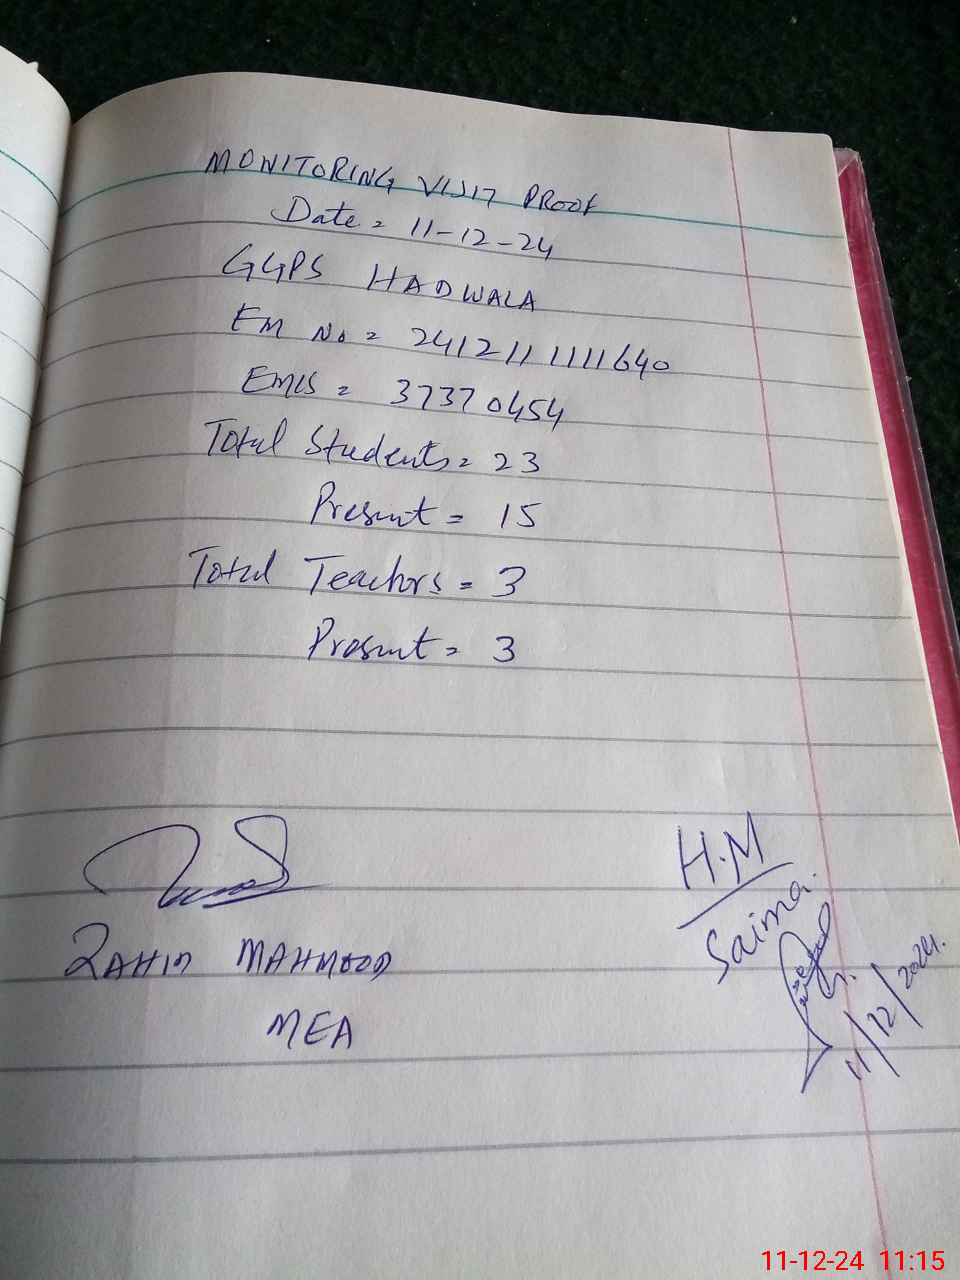 MONITORING VISIT PROOF
Date = 11-12-24
GGPS HADWALA
EM No = 2412111111640
EMIS = 37370454
Total Students = 23
Present = 15
Total Teachers = 3
Present = 3
ZAHID MAHMOOD
MEA
H.M
Saima.
11/12/2024.
11-12-24 11:15